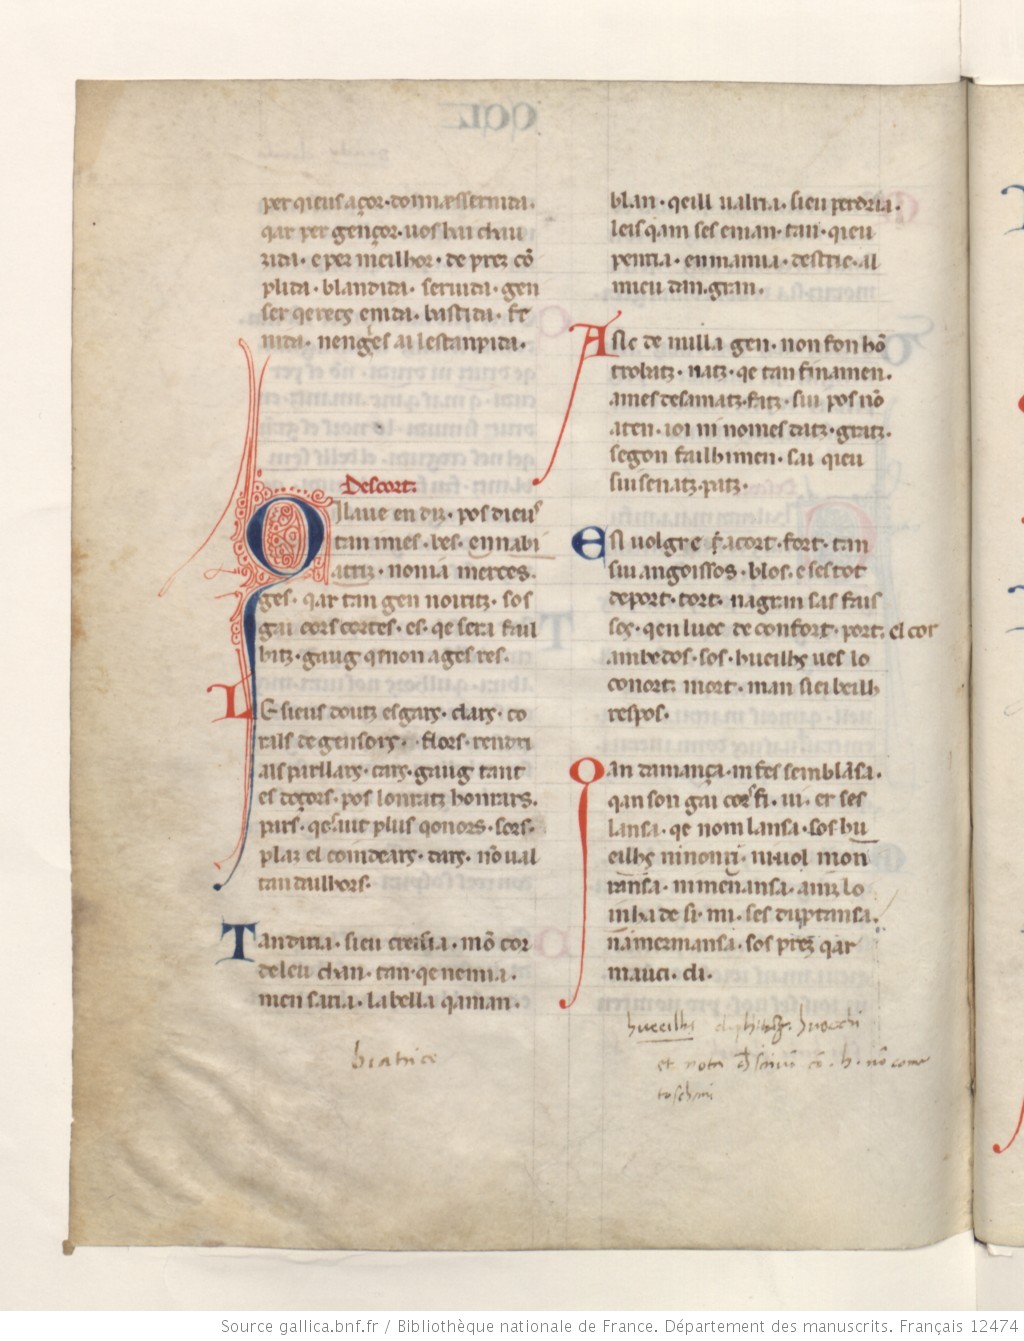 per qieus açor. domnesseruida.
qar per gençor. uos hai chau
zida. e per meilhor. de prez cõ
plida. blandida. seruida. gen
ser qerecs emda. bastida. fe
nida. nengles ai lestampida.
Descort.
Qi laue en diz. pos dieus
tan mes. bes. en nabi
atriz. non ia merces.
ges. qar tan gen noiritz. sos
gai cors cortes. es. qe sera fail
hitz. gaug qenon ages res.
Le sieus douz esgarç. clarç. co
rals de gensorç. flors. rendri
als parllarç. carç. gaug tant
es doçors. pos lonratz honrars.
pars. qesaut plus qonors. sors.
plaz el coindearç. darç. nõual
tan daulhors.
Tan dura. sieu creisia. mõ cor
deleu chan. tan. qenemia.
men saria. la bella qaman.
blan. qeill ualria. sieu perdria.
leis qam ses enian. tan. qieu
penria. en mania. destric. al
mieu dan. gran.
Asic de nulla gen. non fon hõ
trobatz. natz. qe tan finamen.
ames desamatz. fatz. sui pos nõ
aten. ioi ni nomes datz. gratz.
segon failhimen. sai qieu
sui senatz. patz.
Esil uolgre p acort. fort. tan
sui angoissos. blos. e ses tot
deport. tort. nagran sas fais
sos. qen luec de confort. port. el cor
ambedos. sos. hueilhs ues lo
conort. mort. man siei beilh
respos.
Qan damança. mfes semblãsa.
qan son gai cors fi. ui. er ses
lansa. qe nom lansa. sos hu
eilhs ni nonri. ni uol mon
ransa. ni menansa. aniz lo
inha de si. mi. ses duptansa.
namermansa. sos prez qar
mauci. di.
biatrice
hueeilhs huocchi
et nota
toschani
Source gallica.bnf.fr / Bibliothèque nationale de France. Département des manuscrits. Français 12474